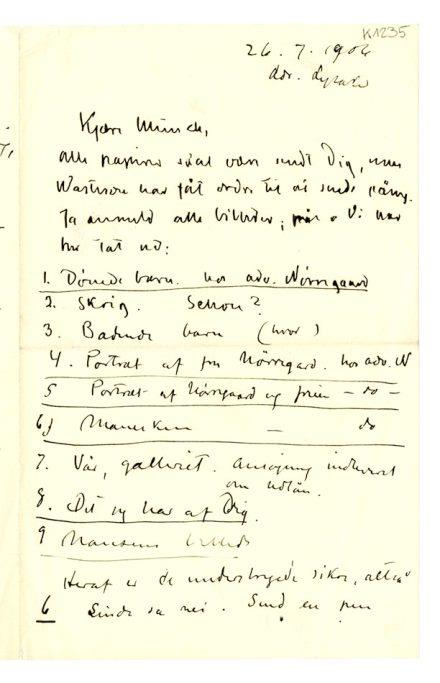 K1235
26.7.1906
Adr.
Kjære Munch,
alle papirer skal være sendt Dig, men
har fåt ordre til at sende
Ja anmeld alle billeder; Vi har
her tat ud:
1. Døende barn. hos adv. Nörregaard
2. Skrig. Schou?
3. Badende barn (hvor)
4. Portræt af fru Nörregard. hos adv. N
5 Portræt af Nörregaard og fruen – do –
6) Mannsken – do
7. Vår, galleriet. Ansögning indleveret
om udlån.
8. Det jeg har af Dig.
9 Hansens billede
Heraf er de understregede sikre, altså
6 Linde sa nei. Send en